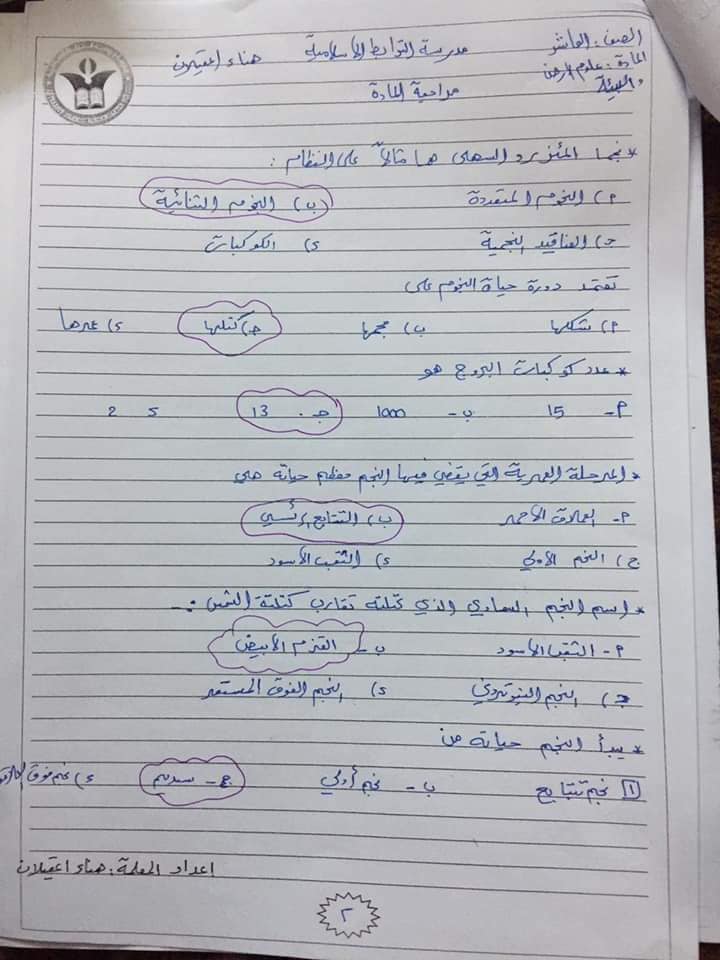 الصف: العاشر مدرسة الثوابط الاسلامية هناء اعتيلان
المادة: علوم الارض
والبيئة مراجعة المادة
* نجما المئزر و السهى هما مثالاً على النظام:
أ) النجوم المتعددة ب) النجوم الثنائية
ج) العناقيد النجمية د) الكوكبات
تعتمد دورة حياة النجوم على
أ) شكلها ب) حجمها ج) كتلتها د) عمرها
* عدد كوكبات البروج هو
أ- 15 ب- 1000 جـ. 13 د 2
* المرحلة العمرية التي يقضي فيها النجم معظم حياته هي
أ- العملاق الأحمر ب) التتابع الرئيسي
ج) النجم الأولي د) الثقب الأسود
* اسم النجم السماوي الذي كتلته تقارب كتلة الشمس :-
أ- الثقب الأسود ب- القزم الأبيض
جـ) النجم النيوتروني د) النجم الفوق المستعر
* يبدأ النجم حياته من
أ نجم تتابع ب- نجم أولي ج- سديم د) نجم فوق
اعداد المعلمة: هناء اعتيلان
٢